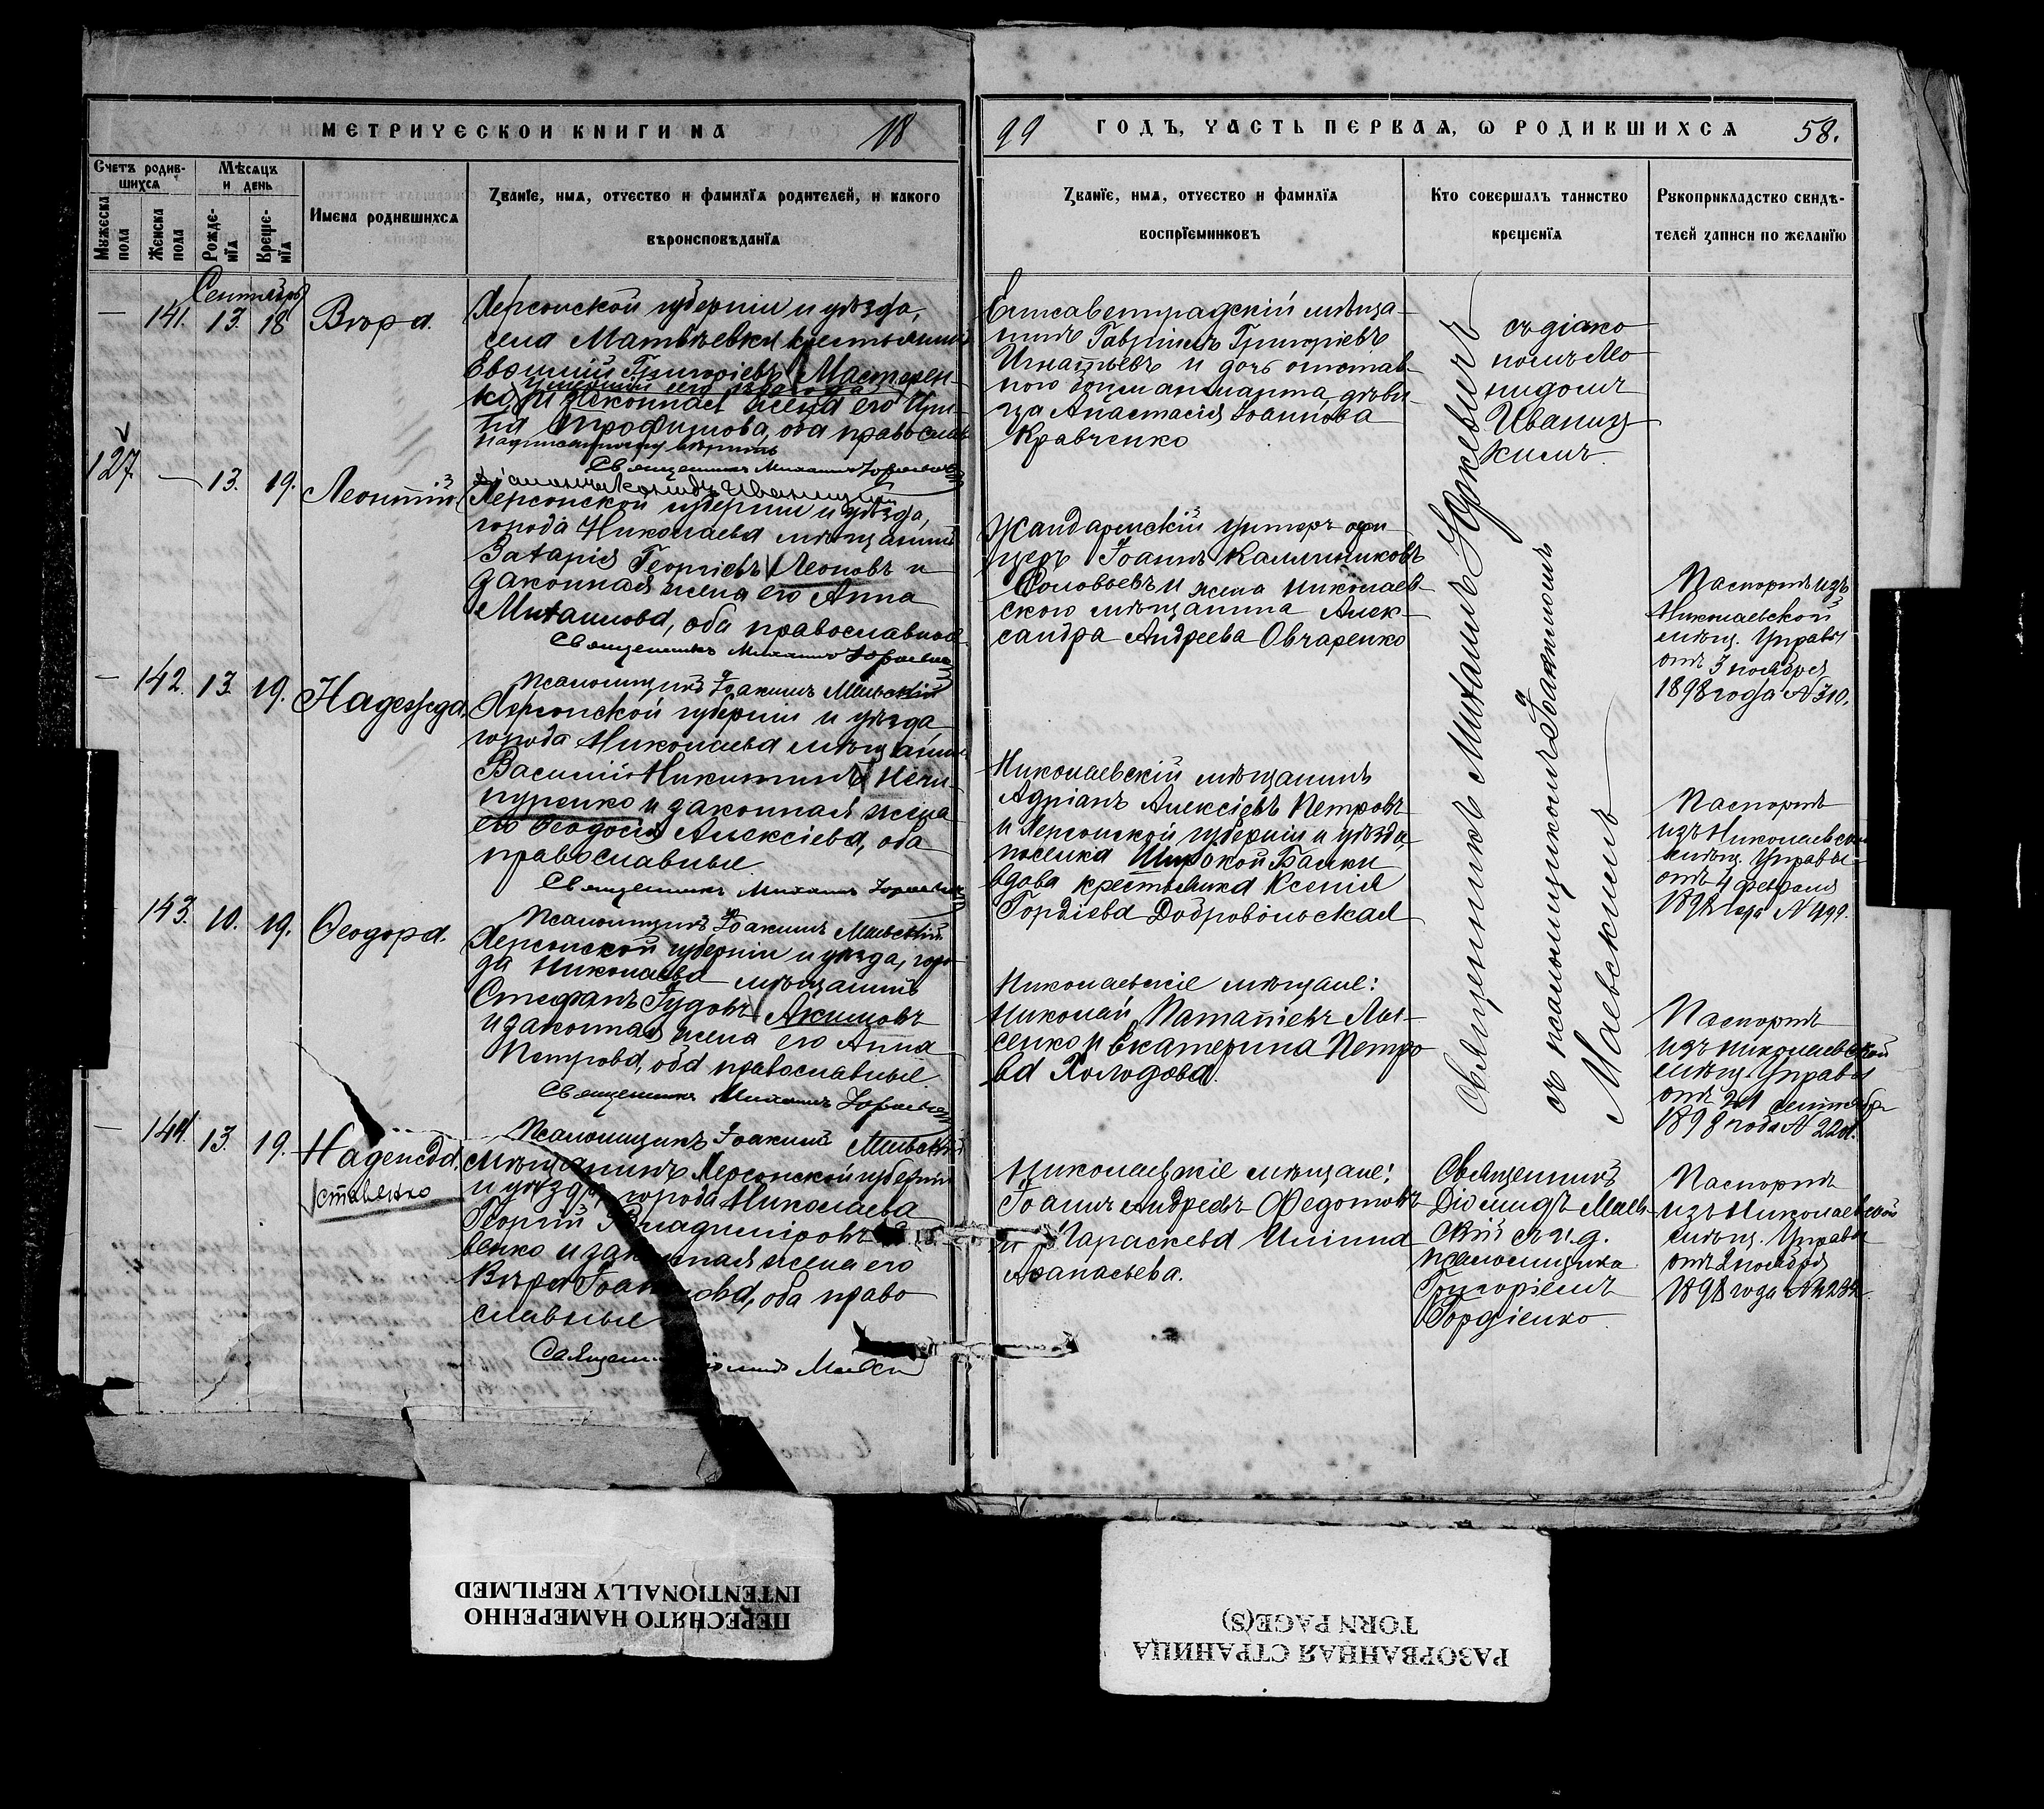 МЕТРИЧЕСКОЙ КНИГИ НА 18
99 ГОДЪ, ЧАСТЬ ПЕРВАЯ, Ѡ РОДИВШИХСЯ 58.
Счетъ родив-
шихся
Мужеска
пола
Женска
пола
Мѣсяцъ
и день
Рожде-
нїя
Креще-
нїя
Имена родившихся
Званїе, имя, отчество и фамилїя родителей, и какого
вѣроисповѣданїя
Званїе, имя, отчество и фамилїя
воспрїемниковъ
Кто совершалъ таинство
крещенїя
Рукоприкладство свидѣ-
телей записи по желанїю
Сентябрь
— 141. 13. 18 Вѣра.
Херсонской губерніи и уѣзда,
села Матвѣевки крестьянинъ
Евфимій Григоріевъ Мастерен-
ко, и законная жена его Ири-
на Трофимова, оба православ
Священникъ Михаилъ Юркевичъ
Діаконъ Леонидъ Иваницкій
Елисаветградскій мѣща-
нинъ Гавріилъ Григоріевъ
Игнатьевъ и дочь отстав-
ного боцманмата, дѣви-
ца Анастасія Іоаннова
Кравченко
съ діако
номъ Лео
нидомъ
Иваниц
кимъ.
127. — 13. 19. Леонтій
Херсонской губерніи и уѣзда,
города Николаева мѣщанинъ
Захарія Георгіевъ Леоновъ и
законная жена его Анна
Михаилова, оба православные
Священникъ Михаилъ Юркевичъ
Псаломщикъ Іоакимъ Маевскій
Жандармскій унтеръ офи
церъ Іоаннъ Каллиниковъ
Соловьевъ и жена николаев-
ского мѣщанина Алек-
сандра Андреева Овчаренко
Паспортъ изъ
Николаевской
мѣщ. Управы
отъ 3 ноября
1898 года № 310.
— 142. 13. 19. Надежда
Херсонской губерніи и уѣзда
города Николаева мѣщанинъ
Василій Никитинъ Нечи-
пуренко и законная жена
его Ѳеодосія Алексіева, оба
православные
Священникъ Михаилъ Юркевичъ
Псаломщикъ Іоакимъ Маевскій
Николаевскій мѣщанинъ
Адріанъ Алексіевъ Петровъ
и Херсонской губерніи и уѣзда,
поселка Широкой Балки
вдова крестьянка Ксенія
Гордіева Добровольская
Паспортъ
изъ Николаевской
мѣщ. Управы
отъ 4 февраля
Священникъ Михаилъ Юркевичъ
съ псаломщикомъ Іоакимомъ
Маевскимъ
143. 10. 19. Ѳеодора.
Херсонской губерніи и уѣзда, горо
да Николаева мѣщанинъ
Стефанъ Гудовъ Акимовъ
и законная жена его Анна
Петрова, оба православные.
Священникъ Михаилъ Юркевичъ
Псаломщикъ Іоакимъ Маевскій
Николаевскіе мѣщане:
Николай Потапіевъ Лы-
сенко и Екатерина Петро
ва Холодова.
Паспортъ
изъ Николаевской
мѣщ. Управы
отъ 21 сентября
1898 года №
— 144. 13. 19. Надежда.
ставенко
Мѣщанинъ Херсонской губерніи
и уѣзда, города Николаева
Георгій Владиміровъ
венко и законная жена его
Вѣра Іоаннова, оба право
славные
Маевскі
Николаевскіе мѣщане:
Іоаннъ Андреевъ Федотовъ
и Параскева Иліина
Афанасьева.
Священникъ
Діомидъ Маев
скій съ и. д.
псаломщика
Григоріемъ
Гордіенко.
Паспортъ
изъ Николаевской
мѣщ. Управы
отъ 2 ноября
1898 года №
ПЕРЕСНЯТО НАМЕРЕННО
INTENTIONALLY REFILMED
РАЗОРВАННАЯ СТРАНИЦА
TORN PAGE(S)